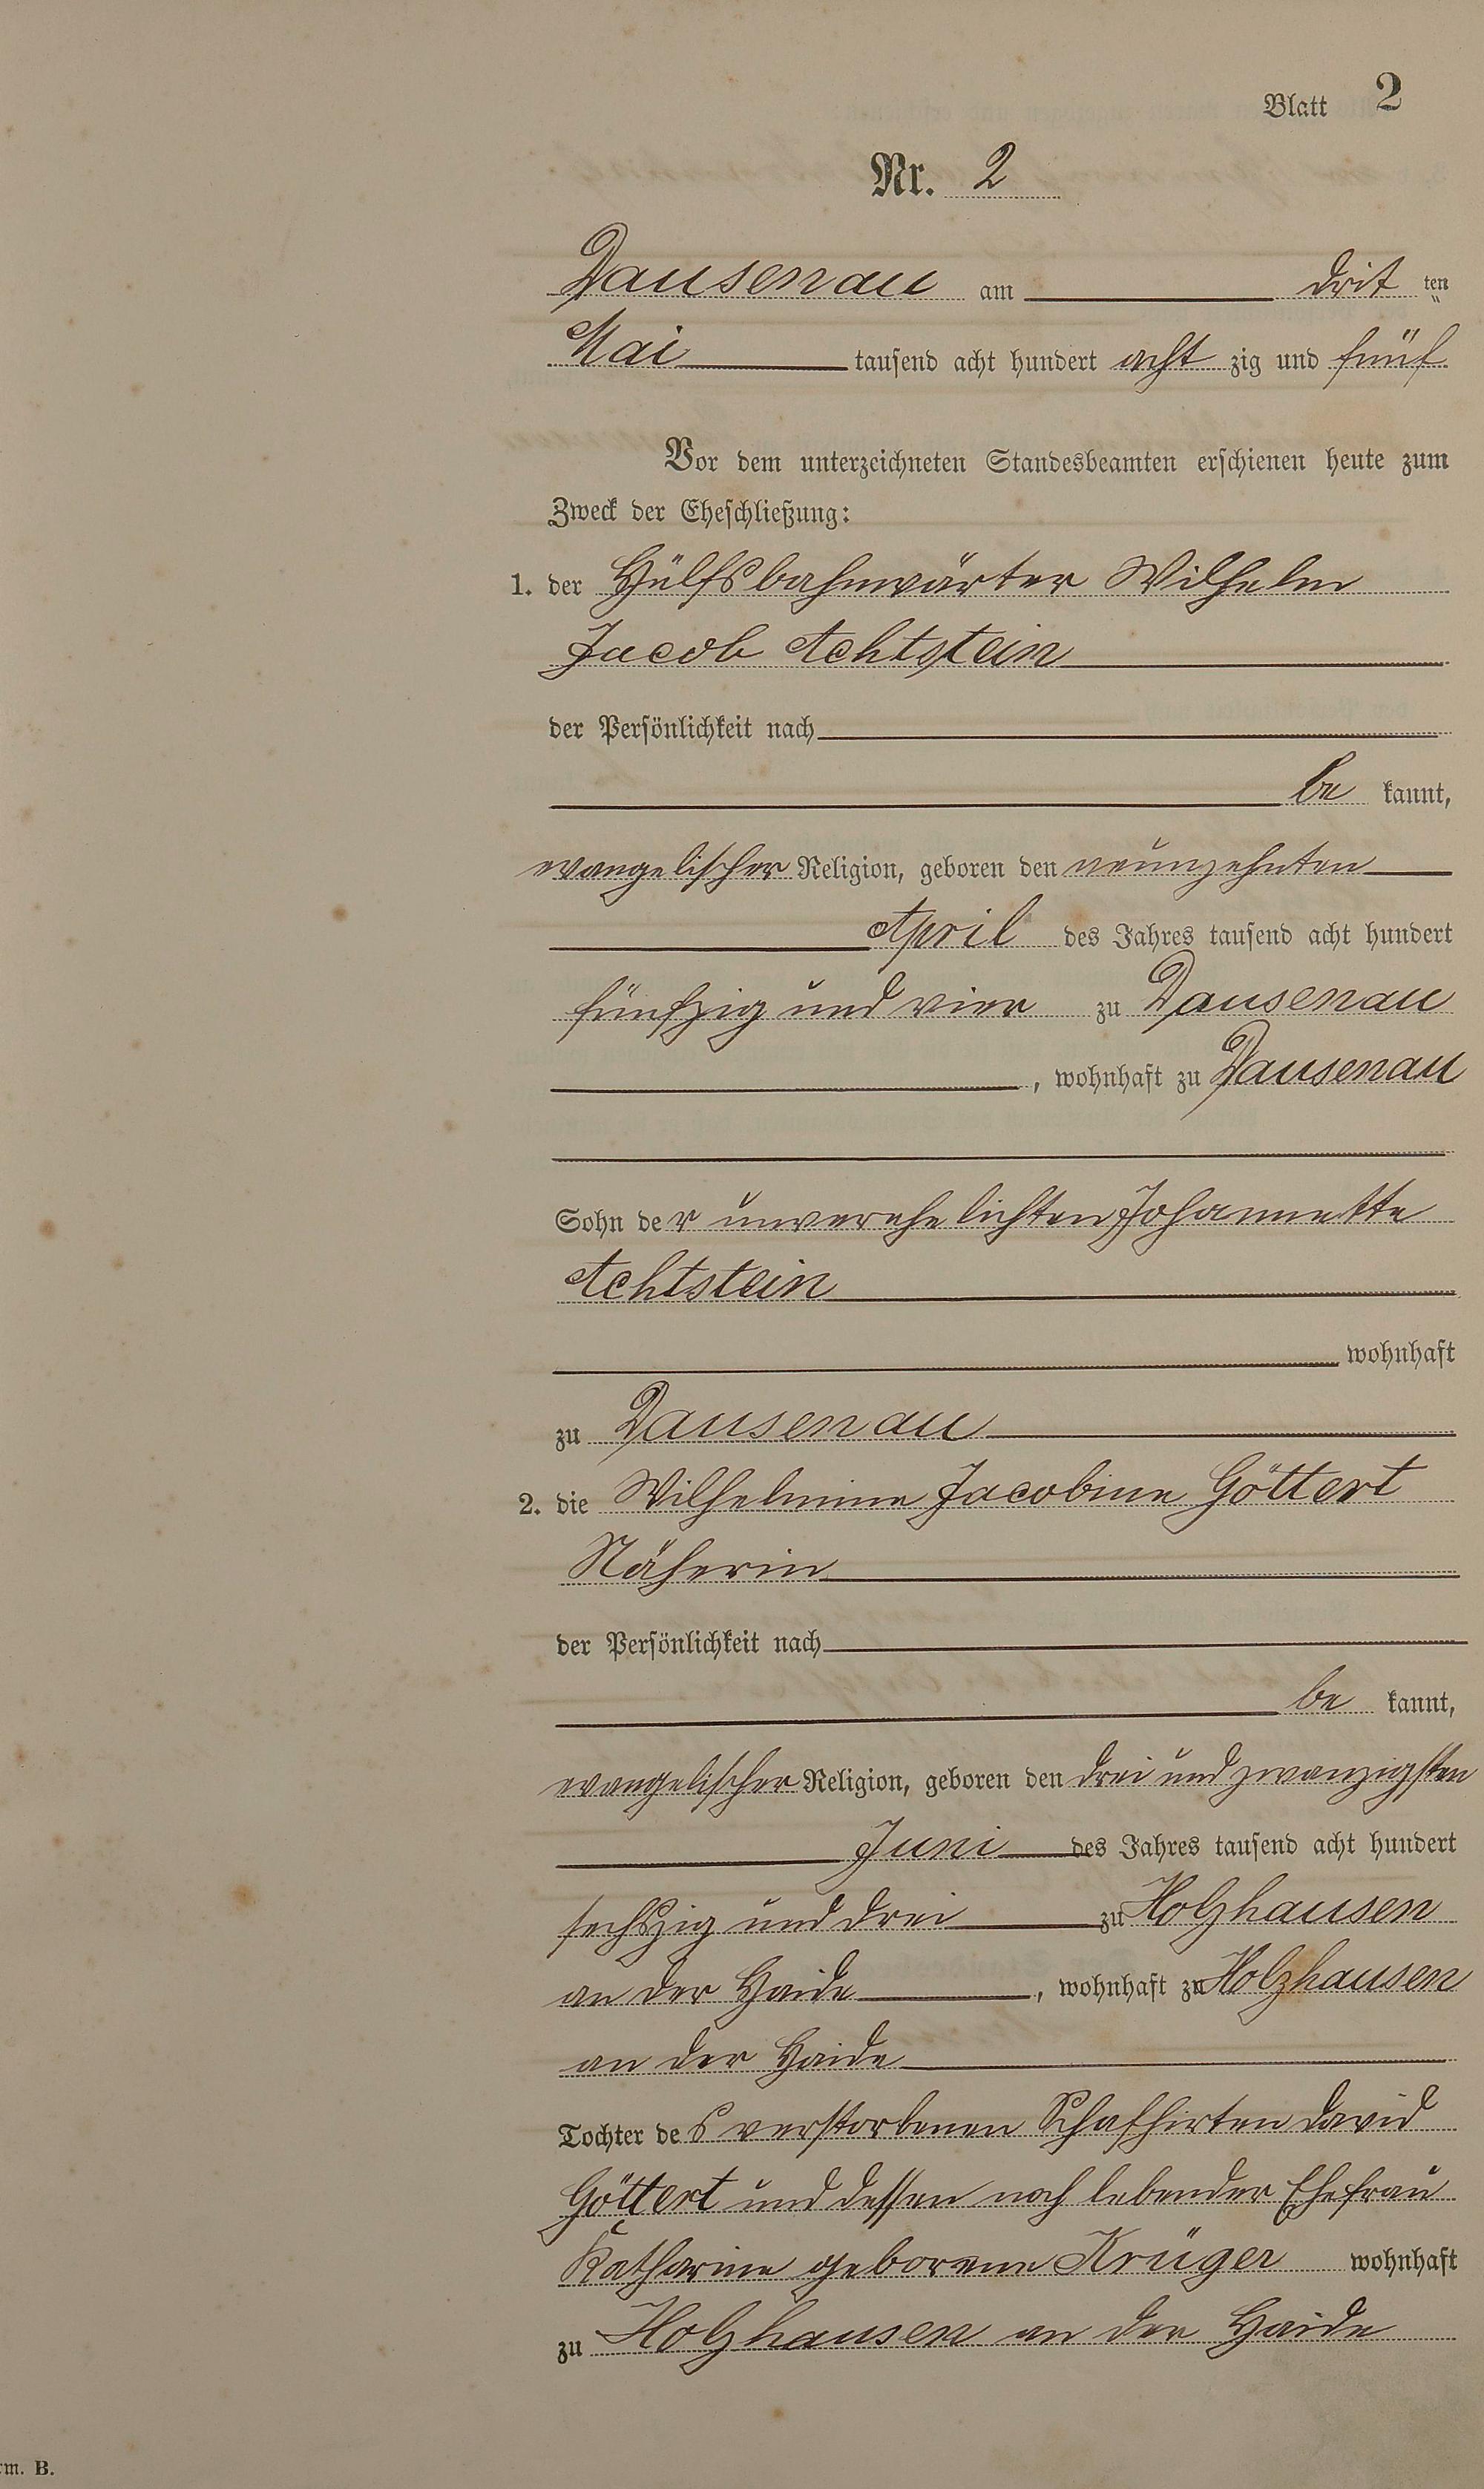 Blatt 2
Nr. 2
Dausenau am drit ten
Mai tausend acht hundert acht zig und fünf
Vor dem unterzeichneten Standesbeamten erschienen heute zum
Zweck der Eheschließung:
1. der Hülfsbahnwärter Wilhelm
Jacob Achtstein
der Persönlichkeit nach
be kannt,
evangelischer Religion, geboren den neunzehnten
April des Jahres tausend acht hundert
fünfzig und vier zu Dausenau
, wohnhaft zu Dausenau
Sohn der unverehelichten Johannette
Achtstein
wohnhaft
zu Dausenau
2. die Wilhelmine Jacobine Göttert
Näherin
der Persönlichkeit nach
be kannt,
evangelischer Religion, geboren den drei und zwanzigsten
Juni des Jahres tausend acht hundert
sechszig und drei zu Holzhausen
an der Haide, wohnhaft zu Holzhausen
an der Haide
Tochter des verstorbenen Schafhirten David
Göttert und dessen noch lebender Ehefrau
Katharine geborene Krüger wohnhaft
zu Holzhausen an der Haide
rm. B.